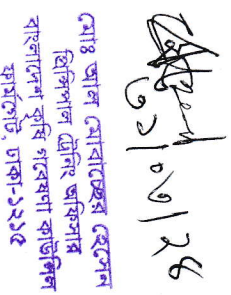 ৩১/০৩/২৪
মোঃ আল মোবাচ্ছের হোসেন
প্রিন্সিপাল ট্রেনিং অফিসার
বাংলাদেশ কৃষি গবেষণা কাউন্সিল
ফার্মগেট, ঢাকা-১২১৫